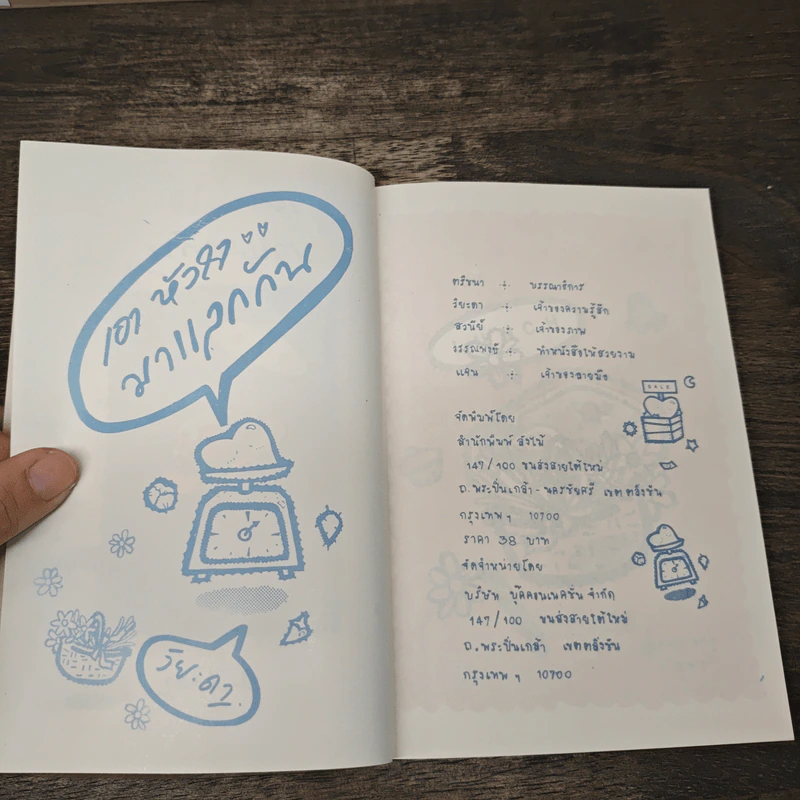 เอา หัวใจ
มาแลกกัน
วิยะดา
ตรีชนา ÷ บรรณาธิการ
วิยะดา ÷ เจ้าของความรู้สึก
สวนีย์ ÷ เจ้าของภาพ
อรรณพงษ์ ÷ ทำหนังสือให้สวยงาม
แจน ÷ เจ้าของลายมือ
จัดพิมพ์โดย
สำนักพิมพ์ ลังไม้
147/100 ขนส่งสายใต้ใหม่
ถ.พระปิ่นเกล้า - นครชัยศรี เขตตลิ่งชัน
กรุงเทพฯ 10700
ราคา 38 บาท
จัดจำหน่ายโดย
บริษัท บุ๊คคอนเนคชั่น จำกัด
147/100 ขนส่งสายใต้ใหม่
ถ.พระปิ่นเกล้า เขตตลิ่งชัน
กรุงเทพฯ 10700
SALE